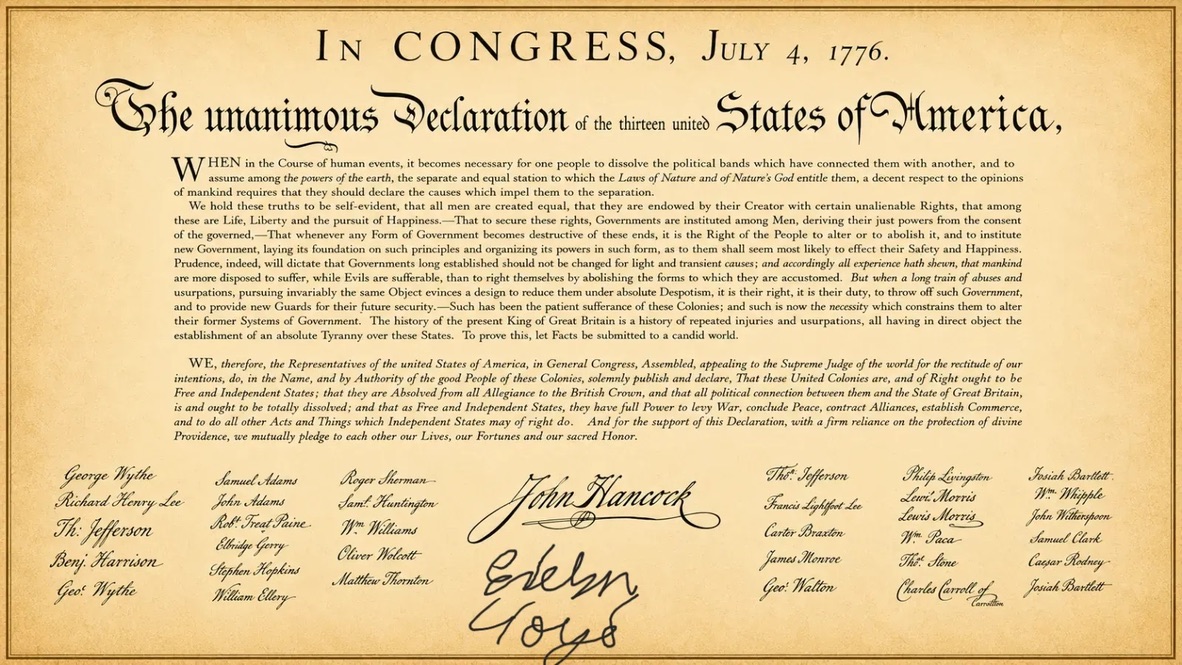 IN CONGRESS, JULY 4, 1776.
The unanimous Declaration of the thirteen united States of America,
WHEN in the Course of human events, it becomes necessary for one people to dissolve the political bands which have connected them with another, and to
assume among the powers of the earth, the separate and equal station to which the Laws of Nature and of Nature's God entitle them, a decent respect to the opinions
of mankind requires that they should declare the causes which impel them to the separation.
We hold these truths to be self-evident, that all men are created equal, that they are endowed by their Creator with certain unalienable Rights, that among
these are Life, Liberty and the pursuit of Happiness.—That to secure these rights, Governments are instituted among Men, deriving their just powers from the consent
of the governed,—That whenever any Form of Government becomes destructive of these ends, it is the Right of the People to alter or to abolish it, and to institute
new Government, laying its foundation on such principles and organizing its powers in such form, as to them shall seem most likely to effect their Safety and Happiness.
Prudence, indeed, will dictate that Governments long established should not be changed for light and transient causes; and accordingly all experience hath shewn, that mankind
are more disposed to suffer, while Evils are sufferable, than to right themselves by abolishing the forms to which they are accustomed. But when a long train of abuses and
usurpations, pursuing invariably the same Object evinces a design to reduce them under absolute Despotism, it is their right, it is their duty, to throw off such Government,
and to provide new Guards for their future security.—Such has been the patient sufferance of these Colonies; and such is now the necessity which constrains them to alter
their former Systems of Government. The history of the present King of Great Britain is a history of repeated injuries and usurpations, all having in direct object the
establishment of an absolute Tyranny over these States. To prove this, let Facts be submitted to a candid world.
WE, therefore, the Representatives of the united States of America, in General Congress, Assembled, appealing to the Supreme Judge of the world for the rectitude of our
intentions, do, in the Name, and by Authority of the good People of these Colonies, solemnly publish and declare, That these United Colonies are, and of Right ought to be
Free and Independent States; that they are Absolved from all Allegiance to the British Crown, and that all political connection between them and the State of Great Britain,
is and ought to be totally dissolved; and that as Free and Independent States, they have full Power to levy War, conclude Peace, contract Alliances, establish Commerce,
and to do all other Acts and Things which Independent States may of right do. And for the support of this Declaration, with a firm reliance on the protection of divine
Providence, we mutually pledge to each other our Lives, our Fortunes and our sacred Honor.
George Wythe
Richard Henry Lee
Th: Jefferson
Benj. Harrison
Geo! Wythe
Samuel Adams
John Adams
Robt. Treat Paine
Elbridge Gerry
Stephen Hopkins
William Ellery
Roger Sherman
Saml. Huntington
Wm Williams
Oliver Wolcott
Matthew Thornton
John Hancock
Thos. Jefferson
Francis Lightfoot Lee
Carter Braxton
James Monroe
Geo! Walton
Philip Livingston
Lewi! Morris
Lewis Morris
Wm. Paca
Thos! Stone
Charles Carroll of
Carrollton
Josiah Bartlett
Wm. Whipple
John Witherspoon
Samuel Clark
Caesar Rodney
Josiah Bartlett